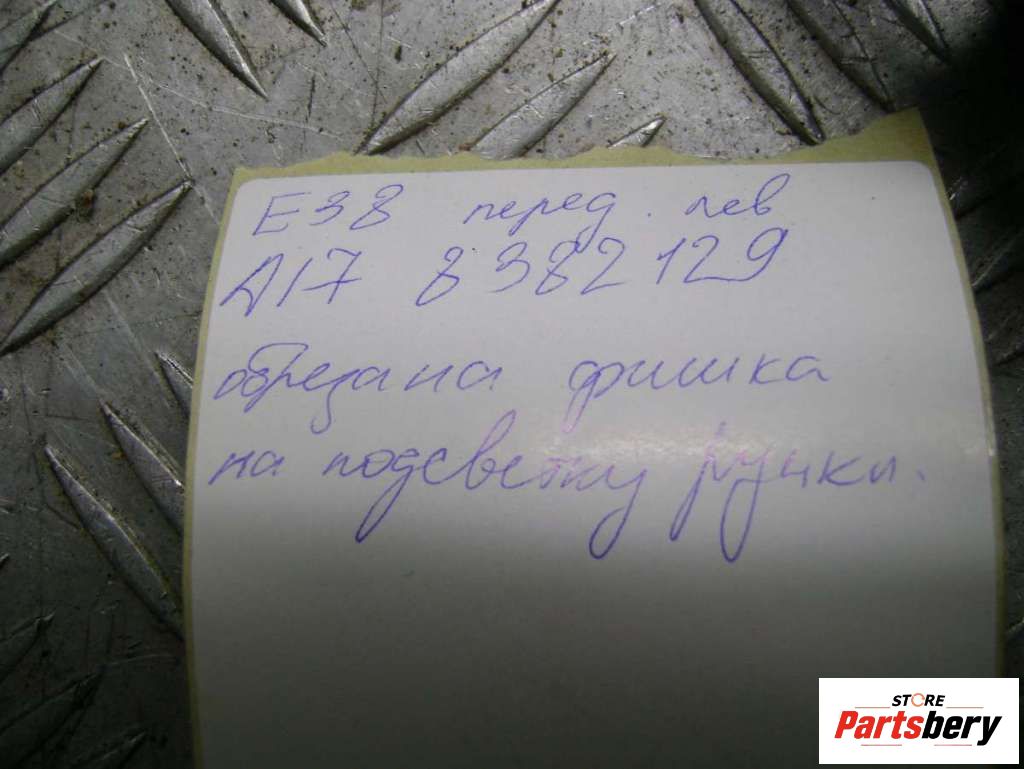 E38 перед. лев
А17 8382129
обрезана фишка
на подсветку ручки.
STORE
Partsbery